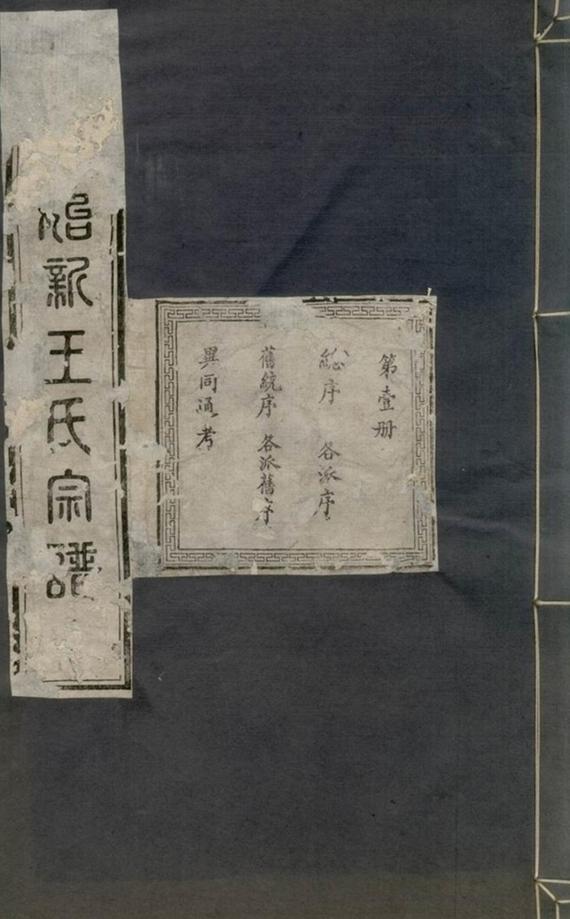 第壹册
總序 各派序
舊統序 各派舊序
異同通考
新王氏宗譜